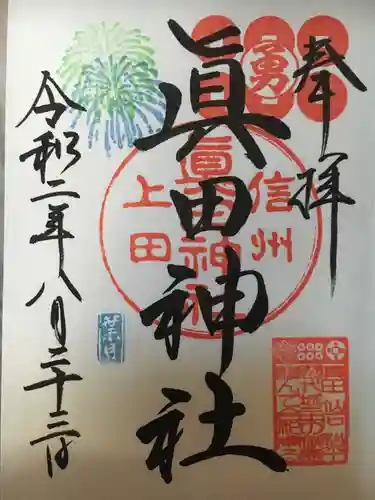 奉拝
勇
眞田神社
信州
眞田神社
上田
葉月
令和二年八月二十三日